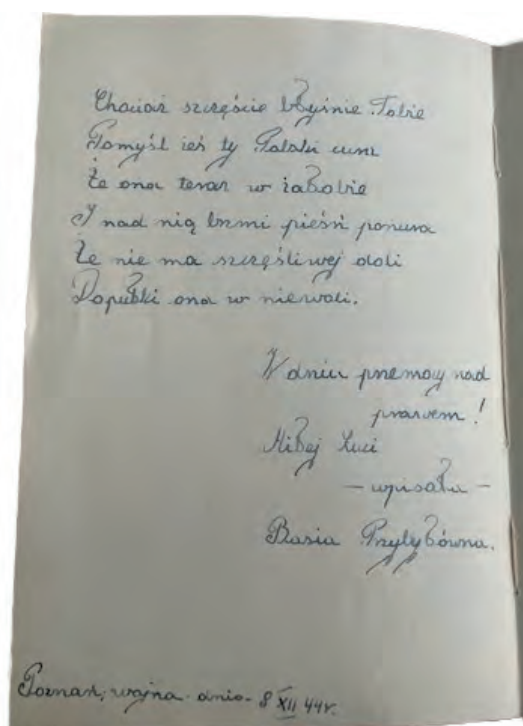 Chociaż szczęście błyśnie Tobie
Pomyśl żeś ty Polski cura
Że ona teraz w żałobie
I nad nią brzmi pieśń ponura
Że nie ma szczęśliwej doli
Dopułki ona w niewoli.
W dniu przemocy nad
prawem!
Miłej Luci
— wpisała —
Basia Przyłybówna.
Poznań, wojna dnia 8 XII 44r.